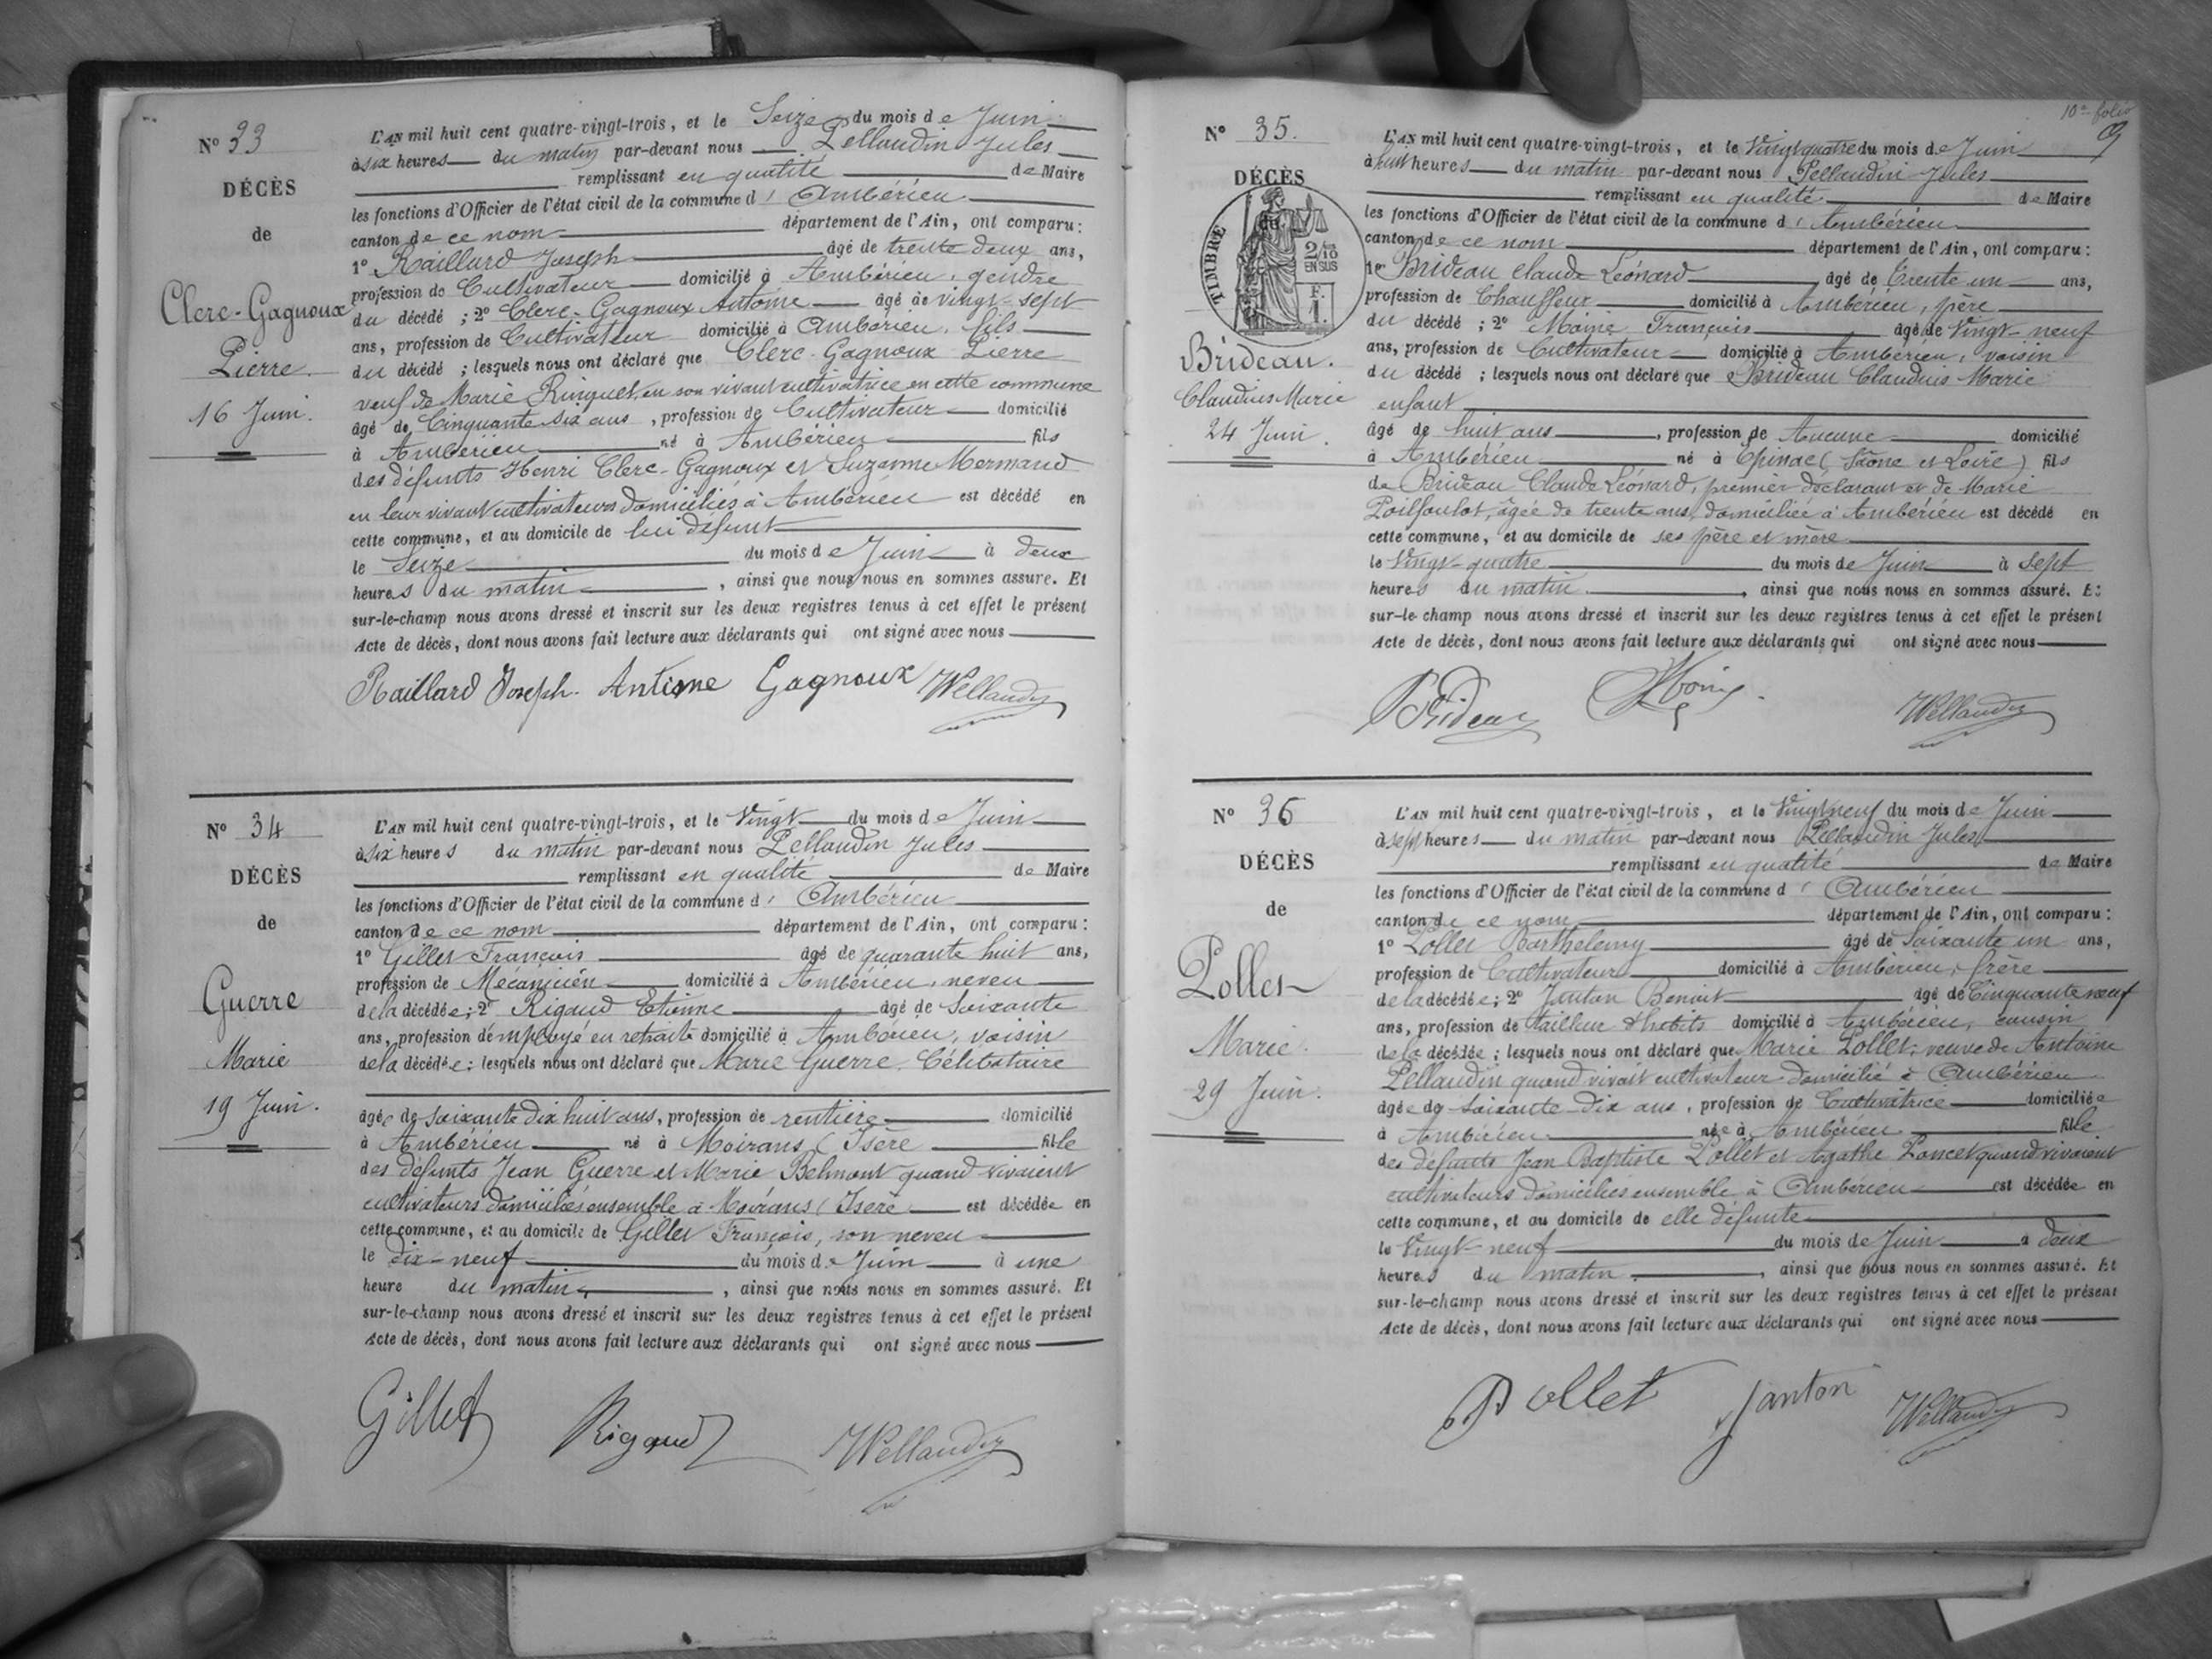 N° 33
DÉCÈS
de
Clerc-Gagnoux
Pierre
16 Juin.
L'AN mil huit cent quatre-vingt-trois, et le Seize du mois de Juin
à six heures du matin par-devant nous Pellaudin Jules
remplissant en qualité de Maire
les fonctions d'Officier de l'état civil de la commune d' Ambérieu
canton de ce nom département de l'Ain, ont comparu:
1° Raillard Joseph âgé de trente deux ans,
profession de Cultivateur domicilié à Ambérieu, gendre
du décédé ; 2° Clerc-Gagnoux Antoine âgé de vingt-sept
ans, profession de Cultivateur domicilié à Ambérieu, fils
du décédé ; lesquels nous ont déclaré que Clerc-Gagnoux Pierre
veuf de Marie Ringuet, en son vivant cultivatrice en cette commune
âgé de Cinquante six ans, profession de Cultivateur domicilié
à Ambérieu né à Ambérieu fils
des défunts Henri Clerc-Gagnoux et Suzanne Mermand
en leur vivant cultivateurs domiciliés à Ambérieu est décédé en
cette commune, et au domicile de lui défunt
le Seize du mois de Juin à deux
heures du matin, ainsi que nous nous en sommes assuré. Et
sur-le-champ nous avons dressé et inscrit sur les deux registres tenus à cet effet le présent
Acte de décès, dont nous avons fait lecture aux déclarants qui ont signé avec nous
Raillard Joseph. Antione Gagnoux
N° 34
DÉCÈS
de
Guerre
Marie
19 Juin.
L'AN mil huit cent quatre-vingt-trois, et le Vingt du mois de Juin
à six heures du matin par-devant nous Pellaudin Jules
remplissant en qualité de Maire
les fonctions d'Officier de l'état civil de la commune d' Ambérieu
canton de ce nom département de l'Ain, ont comparu:
1° Gillet François âgé de quarante huit ans,
profession de Mécanicien domicilié à Ambérieu, neveu
de la décédée; 2° Rigaud Etienne âgé de Soixante
ans, profession d'employé en retraite domicilié à Ambérieu, voisin
de la décédée; lesquels nous ont déclaré que Marie Guerre, Célibataire
âgée de soixante dix huit ans, profession de rentière domicilié
à Ambérieu né à Moirans (Isère fille
des défunts Jean Guerre et Marie Belmont quand vivaient
cultivateurs domiciliés ensemble à Moirans (Isère est décédée en
cette commune, et au domicile de Gillet François, son neveu
le dix-neuf du mois de Juin à une
heure du matin, ainsi que nous nous en sommes assuré. Et
sur-le-champ nous avons dressé et inscrit sur les deux registres tenus à cet effet le présent
Acte de décès, dont nous avons fait lecture aux déclarants qui ont signé avec nous
Gillet Rigaud
10e folio
9
N° 35.
DÉCÈS
de
TIMBRE
2/10
EN SUS
F.
1.
Brideau.
Claudius Marie
24 Juin.
L'AN mil huit cent quatre-vingt-trois, et le Vingt quatre du mois de Juin
à huit heures du matin par-devant nous Pellaudin Jules
remplissant en qualité de Maire
les fonctions d'Officier de l'état civil de la commune d' Ambérieu
canton de ce nom département de l'Ain, ont comparu:
1° Brideau Claude Léonard âgé de Trente un ans,
profession de Chauffeur domicilié à Ambérieu, père
du décédé ; 2° Moine François âgé de Vingt-neuf
ans, profession de Cultivateur domicilié à Ambérieu, voisin
du décédé ; lesquels nous ont déclaré que Brideau Claudius Marie
enfant
âgé de huit ans, profession de Aucune domicilié
à Ambérieu né à Epinac (Saône et Loire) fils
de Brideau Claude Léonard, premier déclarant et de Marie
Poilfoulot, âgée de trente ans, domiciliée à Ambérieu est décédé en
cette commune, et au domicile de ses père et mère
le Vingt-quatre du mois de Juin à Sept
heures du matin, ainsi que nous nous en sommes assuré. Et
sur-le-champ nous avons dressé et inscrit sur les deux registres tenus à cet effet le présent
Acte de décès, dont nous avons fait lecture aux déclarants qui ont signé avec nous
Brideau
N° 36
DÉCÈS
de
Pollet
Marie
29 Juin.
L'AN mil huit cent quatre-vingt-trois, et le Vingt neuf du mois de Juin
à sept heures du matin par-devant nous Pellaudin Jules
remplissant en qualité de Maire
les fonctions d'Officier de l'état civil de la commune d' Ambérieu
canton de ce nom département de l'Ain, ont comparu:
1° Pollet Barthelemy âgé de Soixante un ans,
profession de Cultivateur domicilié à Ambérieu, frère
de la décédée; 2° Janton Benoit âgé de Cinquante neuf
ans, profession de tailleur d'habits domicilié à Ambérieu, cousin
de la décédée ; lesquels nous ont déclaré que Marie Pollet, veuve de Antoine
Pellaudin quand vivait cultivateur domicilié à Ambérieu
âgée de Soixante-Dix ans, profession de Cultivatrice domiciliée
à Ambérieu née à Ambérieu fille
des défunts Jean Baptiste Pollet et Agathe Poncet quand vivaient
cultivateurs domiciliés ensemble à Ambérieu est décédée en
cette commune, et au domicile de elle défunte
le Vingt-neuf du mois de Juin à deux
heures du matin, ainsi que nous nous en sommes assuré. Et
sur-le-champ nous avons dressé et inscrit sur les deux registres tenus à cet effet le présent
Acte de décès, dont nous avons fait lecture aux déclarants qui ont signé avec nous
Pollet Janton